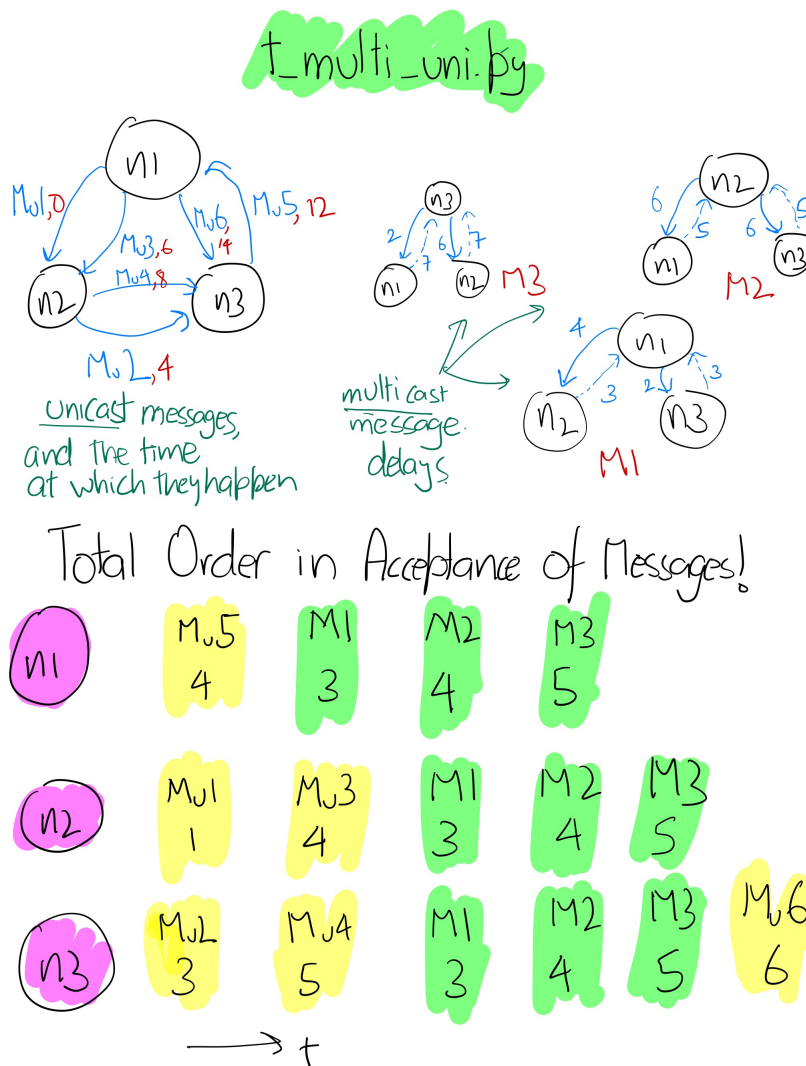 t_multi_uni.py
n1
Mu1,0
Mu3,6
Mu4,8
Mu6,
14
Mu5, 12
n2
n3
Mu2,4
unicast messages,
and the time
at which they happen
n3
2
7
6
7
n1
n2
M3
n2
6
5
6
5
n1
n3
M2
multicast
message
delays.
n1
4
3
2
3
n2
n3
M1
Total Order in Acceptance of Messages!
n1
Mu5 M1 M2 M3
4 3 4 5
n2
Mu1 Mu3 M1 M2 M3
1 4 3 4 5
n3
Mu2 Mu4 M1 M2 M3 Mu6
3 5 3 4 5 6
t